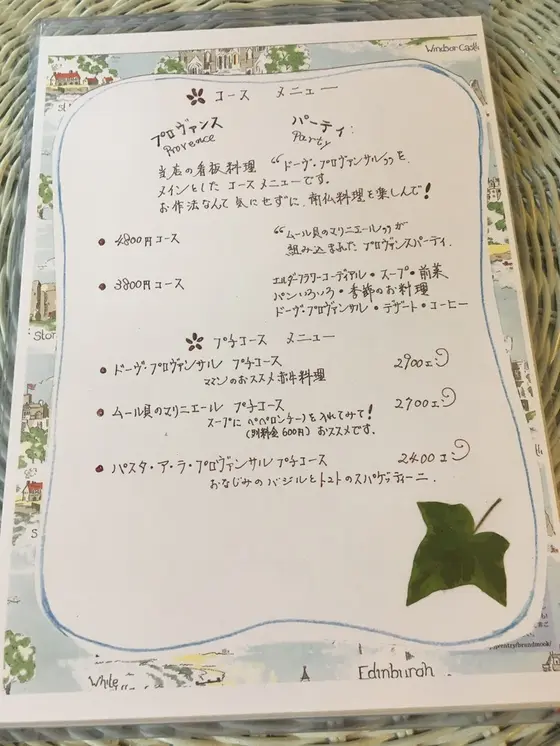 Windsor Castle
コース メニュー
プロヴァンス パーティ:
Provence Party
当店の看板料理 “ドーヴ・プロヴァンサル”を、
メインとした コースメニューです。
お作法なんて 気にせずに、南仏料理を楽しんで!
4800円コース “ムール貝のマリニエール”が
組み込まれた プロヴァンスパーティ.
3800円コース エルダーフラワーコーディアル・スープ・前菜
パンいろいろ・季節のお料理
ドーヴ・プロヴァンサル・デザート・コーヒー
プチコース メニュー
ドーヴ・プロヴァンサル プチコース 2900ェン
ママンのおススメ 赤牛料理
ムール貝のマリニエール プチコース 2700ェン
スープに ペペロンチーノを入れてみて!
(別料金600円) おススメです。
パスタ・ア・ラ・プロヴァンサル プチコース 2400ェン
おなじみの バジルとトマトのスパゲッティーニ.
Edinburgh